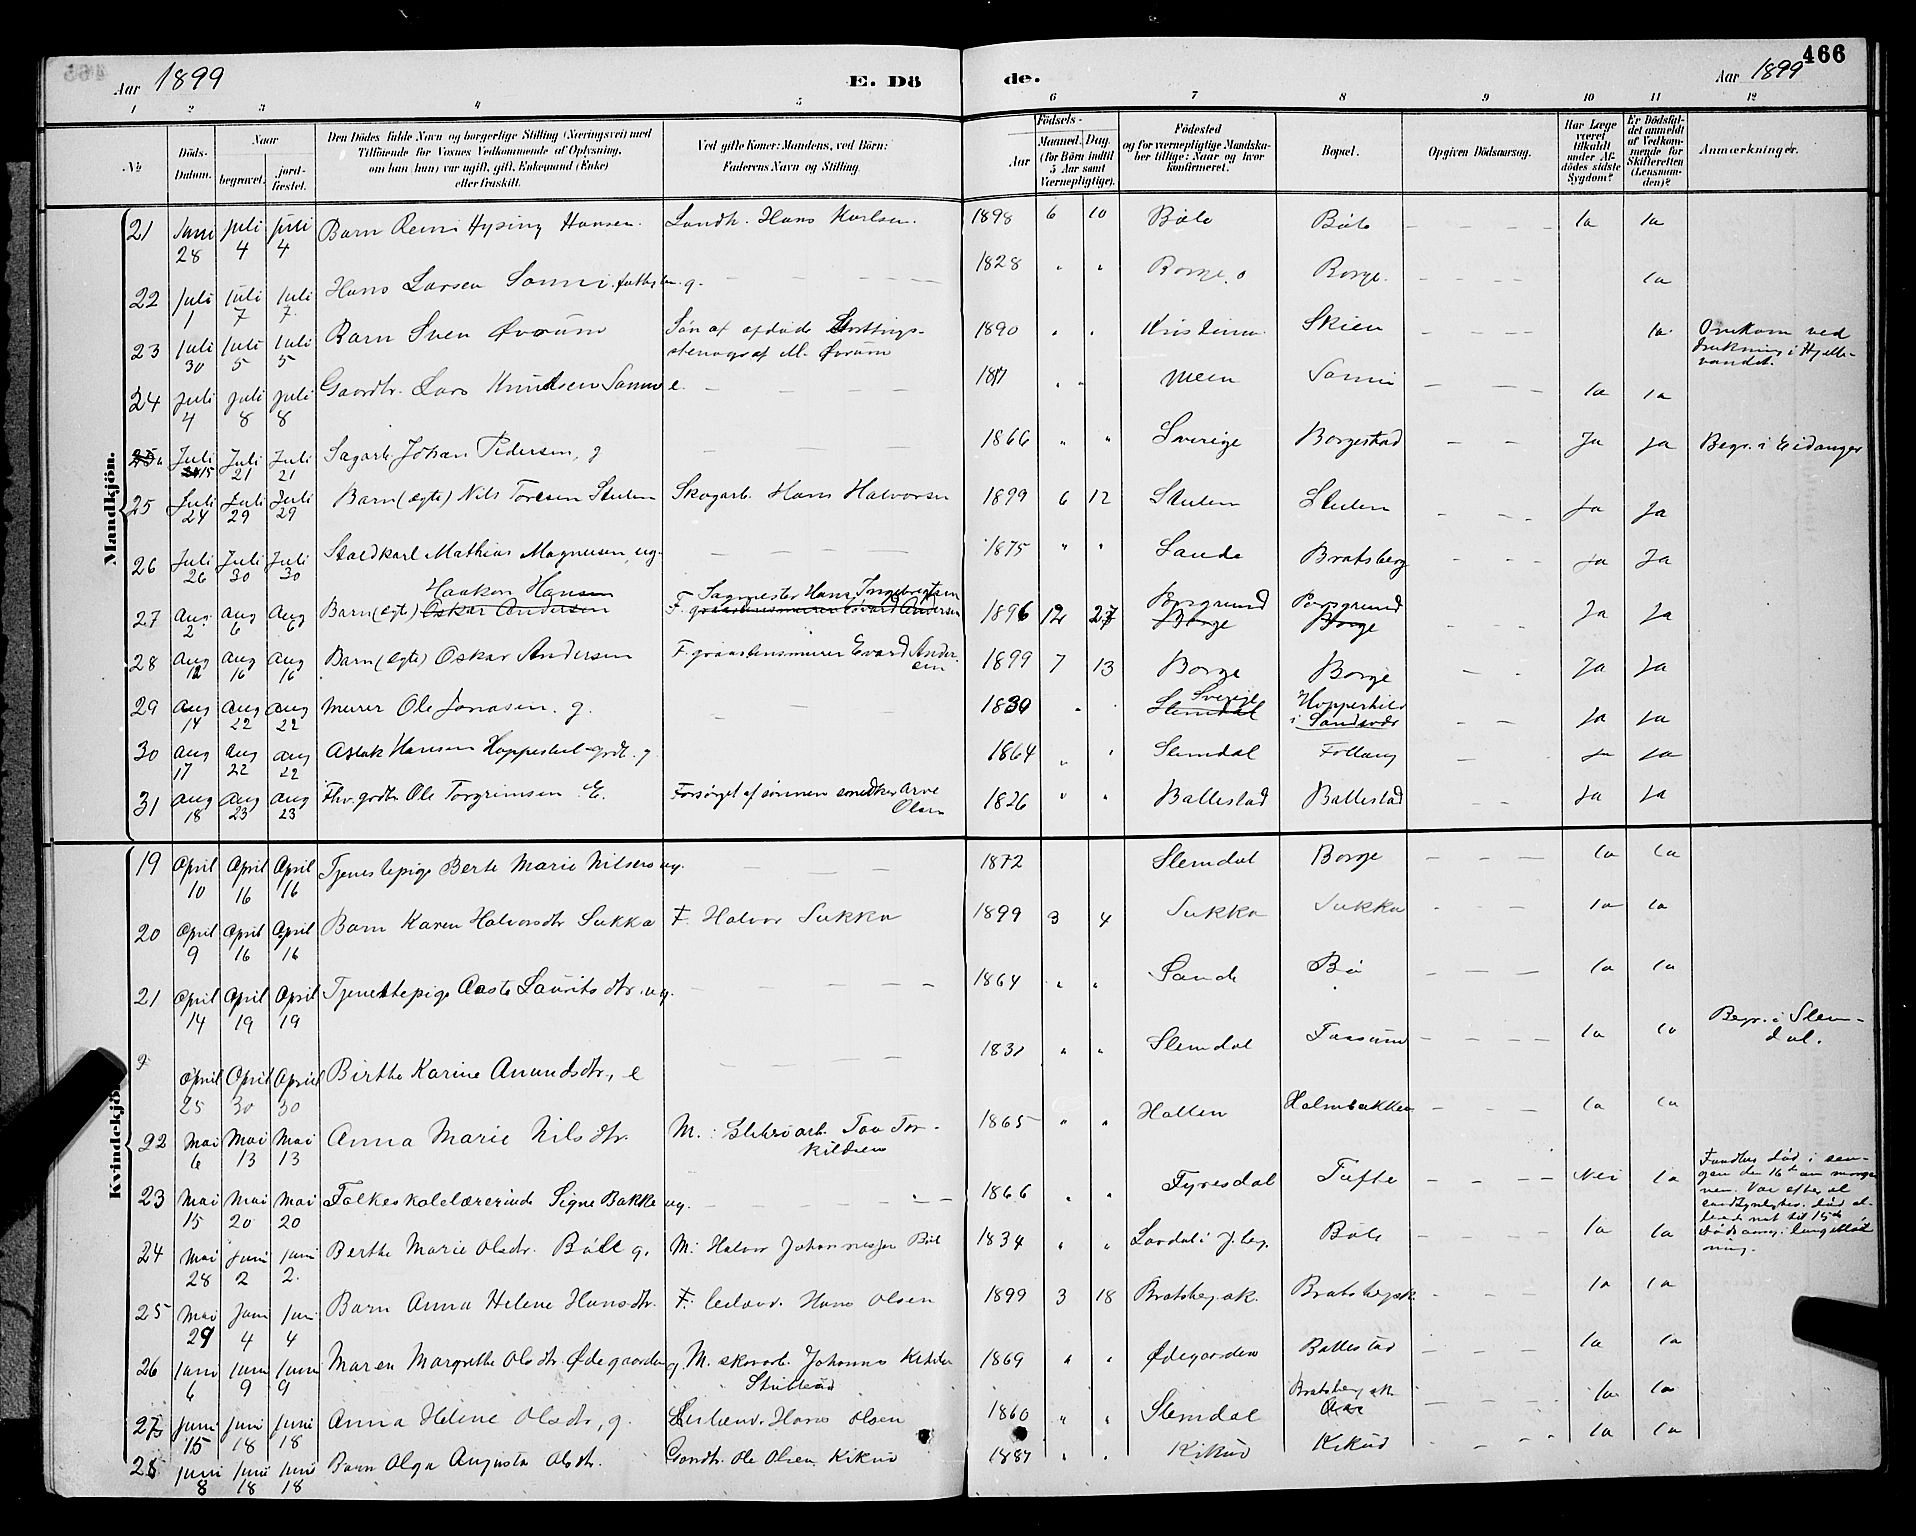 466
Aar 1899 E. Dö de. Aar 1899
1 2 3 4 5 6 7 8 9 10 11 12
No
Döds-Datum.
Naar
begravet.
jordfæstet.
Den Dödes fulde Navn og borgerlige Stilling (Næringsvei) med
Tilföiende for Voxnes Vedkommende af Oplysning,
om han (hun) var ugift, gift, Enkemand (Enke)
eller fraskilt.
Ved gifte Koner: Mandens, ved Börn:
Faderens Navn og Stilling.
Födsels-
Aar
Maaned. Dag.
(for Börn indtil
5 Aar samt
Værnepligtige).
Födested
og for værnepligtige Mandska-
ber tillige: Naar og hvor
konfirmeret.
Bopæl.
Opgiven Dödsaarsag.
Har Læge
været
tilkaldt
under Af-
dödes sidste
Sygdom?
Er Dödsfal-
det anmeldt
af Vedkom-
mende for
Skifteretten
(Lensman-
den)?
Anmærkninger.
Mandkjön.
21 Juni 28 Juli 4 Juli 4 Barn Reini Hysing Hansen. Landh. Hans Karlsen. 1898 6 10 Böle Böle — — — — Ja Ja
22 Juli 1 Juli 7 Juli 7 Hans Larsen Sanni g. — — — 1828 " " Borge Borge. — — — Ja
23 Juli 30 Juli 5 Juli 5 Barn Sven Øvrum Søn af afdøde Storthings-
stenograf M. Øvrum 1890 " " Kristiania Skien — — — Ja Omkom ved
drukning i Hjelle-
vandet.
24 Juli 4 Juli 8 Juli 8 Gaardbr. Lars Knudsen Sanni e. — — 1817 " " Melum Sanni — — — Ja Ja
25a Juli 15 Juli 21 Juli 21 Sagarb. Johan Pedersen, g — — — 1866 " " Sverige Borgestad — — Ja Ja Begr. i Eidanger
25 Juli 24 Juli 29 Juli 29 Barn (egte) Nils Toresen Stulen Skogarb. Hans Halvorsen 1899 6 12 Stulen Stulen — — — Ja Ja
26 Juli 26 Juli 30 Juli 30 Staldkarl Mathias Magnusen, ug. — — — — 1875 " " Sande Bratsberg — — — Ja Ja
Haakon Hansen Sagmester Hans Ingebregtsen
27 Aug. 2 Aug 6 Aug 6 Barn (egte) Oskar Andersen F. graastensmurer Evard Andersen 1896 12 27 Porsgrund Borge Porsgrund Borge — — — Ja Ja
28 Aug 12 Aug 16 Aug 16 Barn (egte) Oskar Andersen F. graastensmurer Evard Ander-
sen 1899 7 13 Borge Borge — — Ja Ja
29 Aug 14 Aug 22 Aug 22 Murer Ole Jonasen. g. — — 1830 " " Sverige Slemdal
i Sandsvær — — Ja Ja
30 Aug 17 Aug 22 Aug 22 Aslak Hansen Hoppestul g. 1864 " " Slemdal Follaug — — Ja Ja
31 Aug 18 Aug 23 Aug 23 Fhv. gdbr Ole Torgrimsen E. Forsørget af sønnen snedker Arve
Olsen 1826 " " Ballestad Ballestad — — Ja Ja
Kvindekjön.
19 April 10 April 16 April 16 Tjenestepige Berte Marie Nilsen ug. — — — 1872 Slemdal Borge — — — Ja Ja
20 April 9 April 16 April 16 Barn Karen Halvorsdtr Sukka F. Halvor Sukka 1899 3 4 Sukka Sukka — — — Ja Ja
21 April 14 April 19 April 19 Tjenestepige Aaste Lauritsdtr. ug. — — — — 1864 " " Sande Bø — — — Ja Ja
April 25 April 30 April 30 Birthe Karine Amundsdtr., e — — — 1831 " " Slemdal Fossum — — — Ja Ja Begr. i Slem-
dal.
22 Mai 6 Mai 13 Mai 13 Anna Marie Nilsdtr. M.: Tor-
kildsen 1865 " " Holten Holmbakken — — — Ja Ja
23 Mai 15 Mai 20 Mai 20 Folkeskolelærerinde Signe Bakke ug. — — — — 1866 " " Fyresdal Tufte — — — Nei Ja Fandtes død i sen-
gen den 16de om morge-
nen. Var efter al
sandsynlighed død al-
lerede nat til 15de
24 Mai 28 Juni 2 Juni 2 Berthe Marie Olsdtr. Böle g. M: Halvor Johannesen Böle 1834 " " Lardal i J. leg. Böle — — — Ja Ja
25 Mai 29 Juni 4 Juni 4 Barn Anna Helene Hansdtr. F. Leilænd. Hans Olsen 1899 3 18 Bratsbergsk. Bratsbergsk — — — Ja Ja
26 Juni 6 Juni 9 Juni 9 Maren Margrethe Olsdtr. Ødegaarden g. M. skovarb. Johannes
1869 " " Ødegaarden Ballestad — — — Ja Ja
27 Juni 15 Juni 18 Juni 18 Anna Helene Olsdtr, g. Leilænd. Hans Olsen 1860 " " Slemdal Bratsbergsk.
— — — Ja Ja
28 Juni 8 Juni 18 Juni 18 Barn Olga Augusta Olsdtr. Gaardbr. Ole Olsen Kikud 1887 " " Kikud Kikud — — — Ja Ja